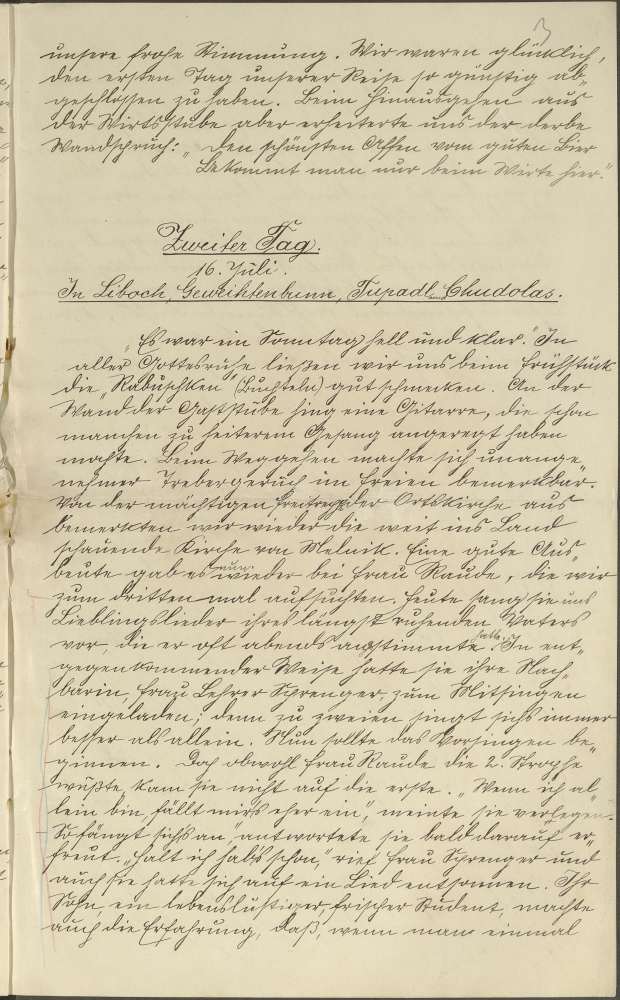 3
unsere frohe Stimmung. Wir waren glücklich,
den ersten Tag unserer Reise so günstig ab-
geschlossen zu haben. Beim Hinausgehen aus
der Wirtsstube aber erheiterte uns der derbe
Wandspruch: „Den schönsten Affen vom guten Bier
Bekommt man nur beim Wirte hier."
Zweiter Tag.
16. Juli.
In Liboch, Geweihtenbrunn, Tupadl und Chudolas.
„Es war im Sonntag hell und klar." In
aller Gottesruhe ließen wir uns beim Frühstück
die „Rabuschken" (Buchteln) gut schmecken. An der
Wand der Gaststube hing eine Gitarre, die schon
manchen zu heiterem Gesang angeregt haben
mochte. Beim Weggehen machte sich unange-
nehmer Trebergeruch im Freien bemerkbar.
Von der mächtigen Freitreppe der Ortskirche aus
bemerkten wir wieder die weit ins Land
schauende Kirche von Melnik. Eine gute Aus-
beute gab es nun wieder bei Frau Raude, die wir
zum dritten mal aufsuchten. Heute sang sie uns
Lieblingslieder ihres längst ruhenden Vaters
vor, die er oft abends angestimmte hatte. In ent-
gegenkommender Weise hatte sie ihre Nach-
barin, Frau Lehrer Sprenger, zum Mitsingen
eingeladen; denn zu zweien singt sichs immer
besser als allein. Nun sollte das Vorsingen be-
ginnen. Doch obwohl Frau Raude die 2. Strophe
wüßte, kam sie nicht auf die erste. „Wenn ich al-
lein bin, fällt mirs eher ein", meinte sie verlegen.
„So fängt sichs an", antwortete sie bald darauf er-
freut. „Halt ich habs schon," rief Frau Sprenger und
auch sie hatte sich auf ein Lied entsonnen. Ihr
Sohn, ein lebenslustiger, frischer Student, machte
auch die Erfahrung, daß, wenn man einmal